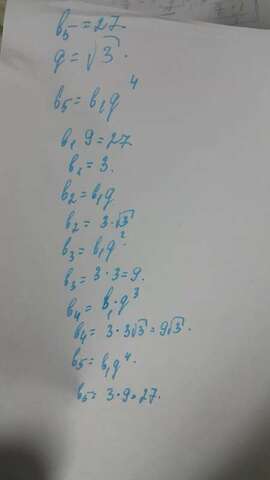 b₅ = 27
q = √3.
b₅ = b₁q⁴
b₁ 9 = 27
b₁ = 3.
b₂ = b₁q
b₂ = 3·√3
b₃ = b₁q²
b₃ = 3·3 = 9.
b₄ = b₁·q³
b₄ = 3·3√3 = 9√3.
b₅ = b₁q⁴.
b₅ = 3·9 = 27.